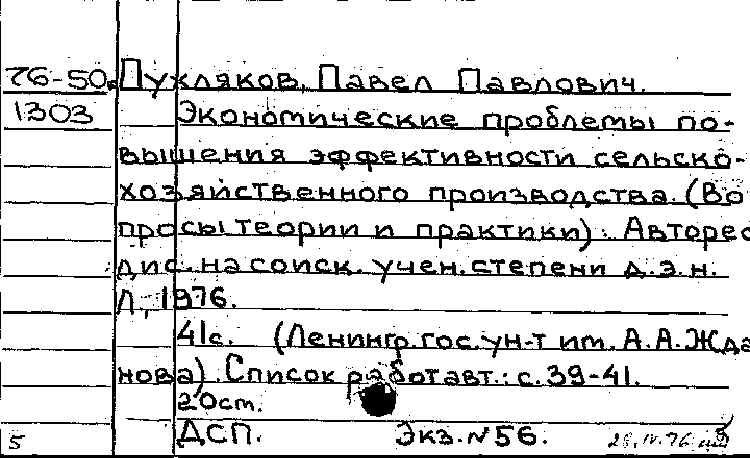 76-50. Пухляков, Павел Павлович.
1303 Экономические проблемы по-
вышения эффективности сельско-
хозяйственного производства. (Во
просы теории и практики). Авторес
дис. на соиск. учен. степени д.э.н.
Л., 1976.
41с. (Ленингр. гос. ун-т им. А.А. Жда
нова). Список работ авт.: с. 39-41.
20 см.
5 ДСП. Экз. №56. 28.IV.76